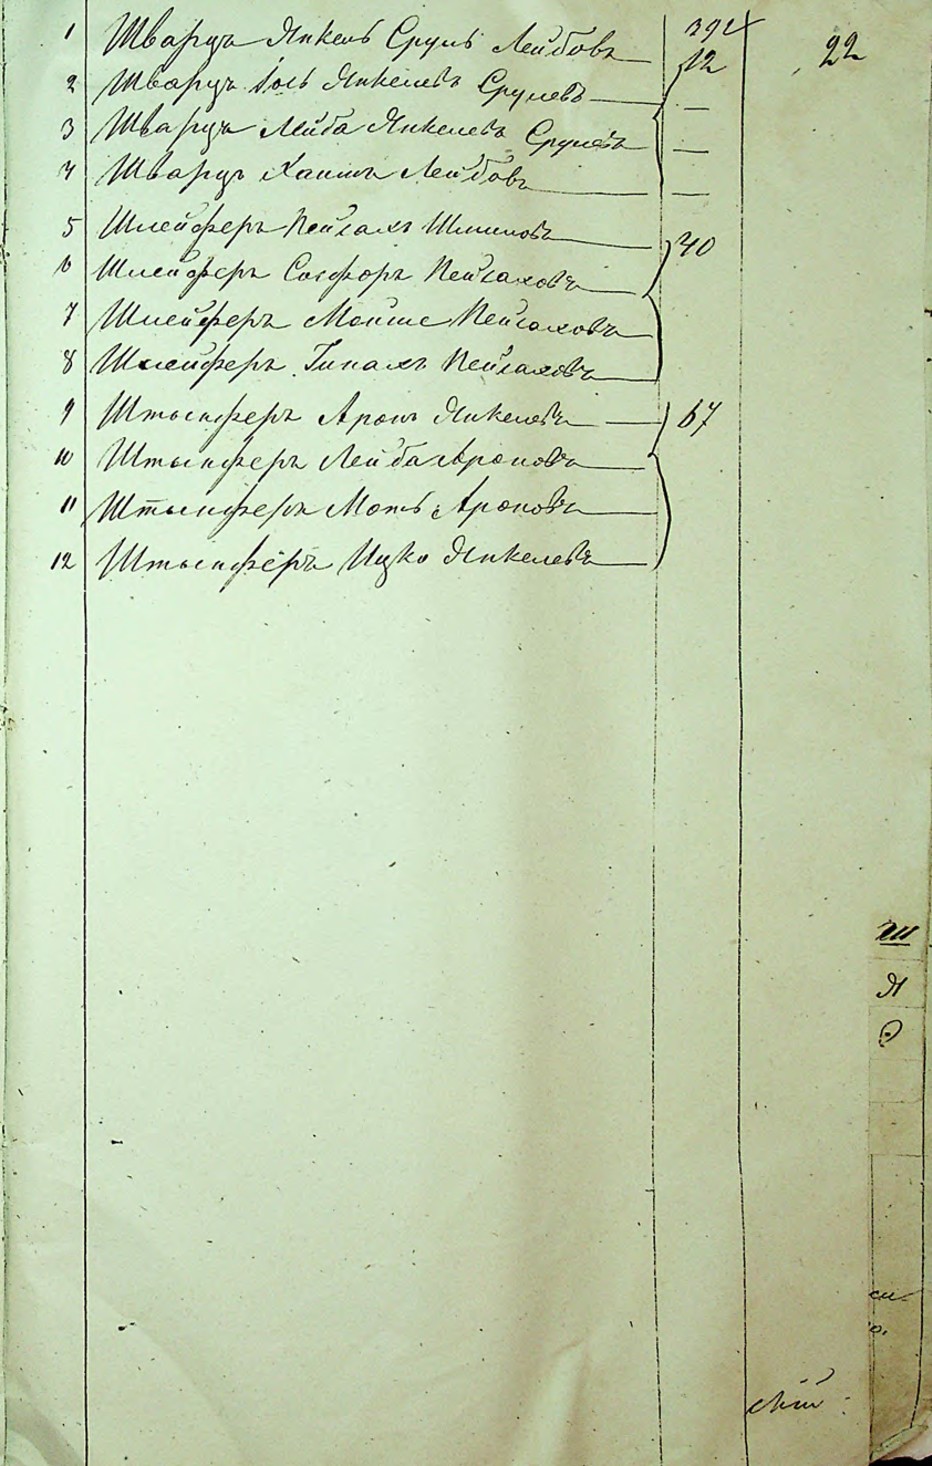 22
1 Шварцъ Янкель Сруль Лейбовъ
12
2 Шварцъ Іось Янкелевъ Срулевъ —
3 Шварцъ Лейба Янкелевъ Срулевъ —
4 Шварцъ Хаимъ Лейбовъ —
5 Шлейферъ Пейсахъ Шлиомовъ 40
6 Шлейферъ Сосфоръ Пейсаховъ
7 Шлейферъ Мойше Пейсаховъ
8 Шлейферъ Пейсаховъ
9 Штыпферъ Аронъ Янкелевъ 67
10 Штыпферъ Лейба Ароновъ
11 Штыпферъ Моть Ароновъ
12 Штыпферъ Ицко Янкелевъ
Ш
Я